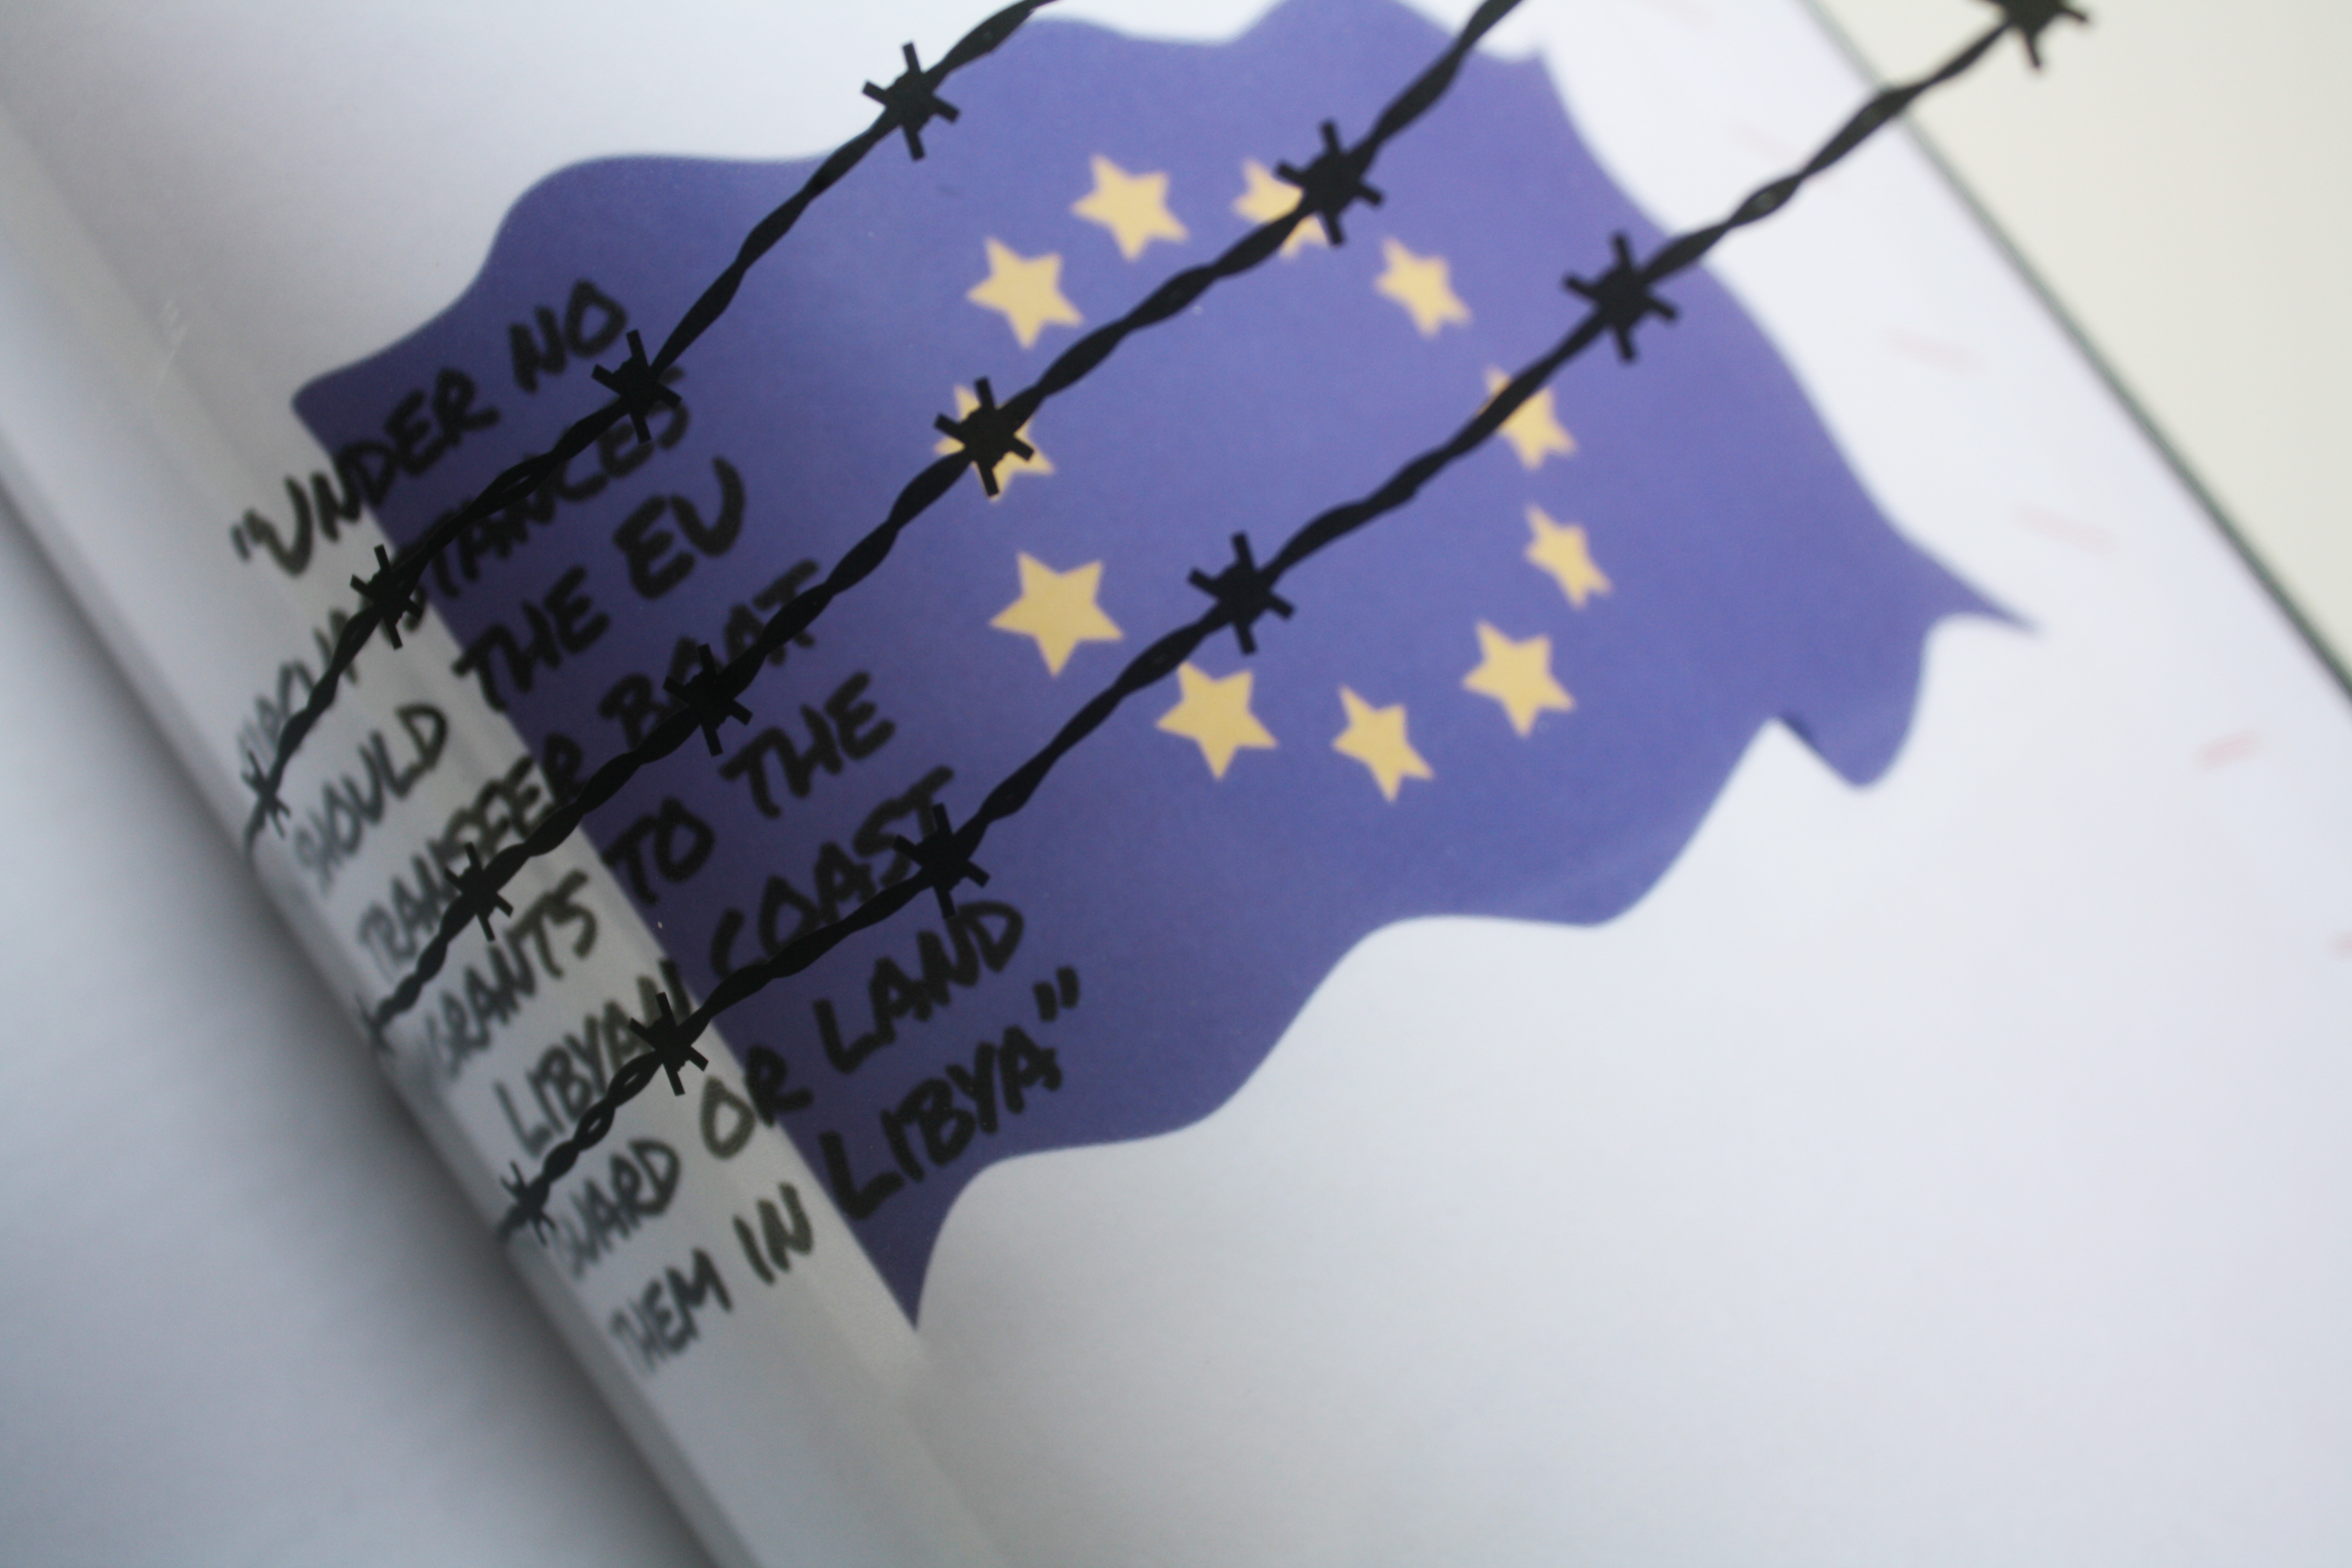 "UNDER NO
CIRCUMSTANCES
SHOULD THE EU
TRANSFER BOAT
MIGRANTS TO THE
LIBYAN COAST
GUARD OR LAND
THEM IN LIBYA"